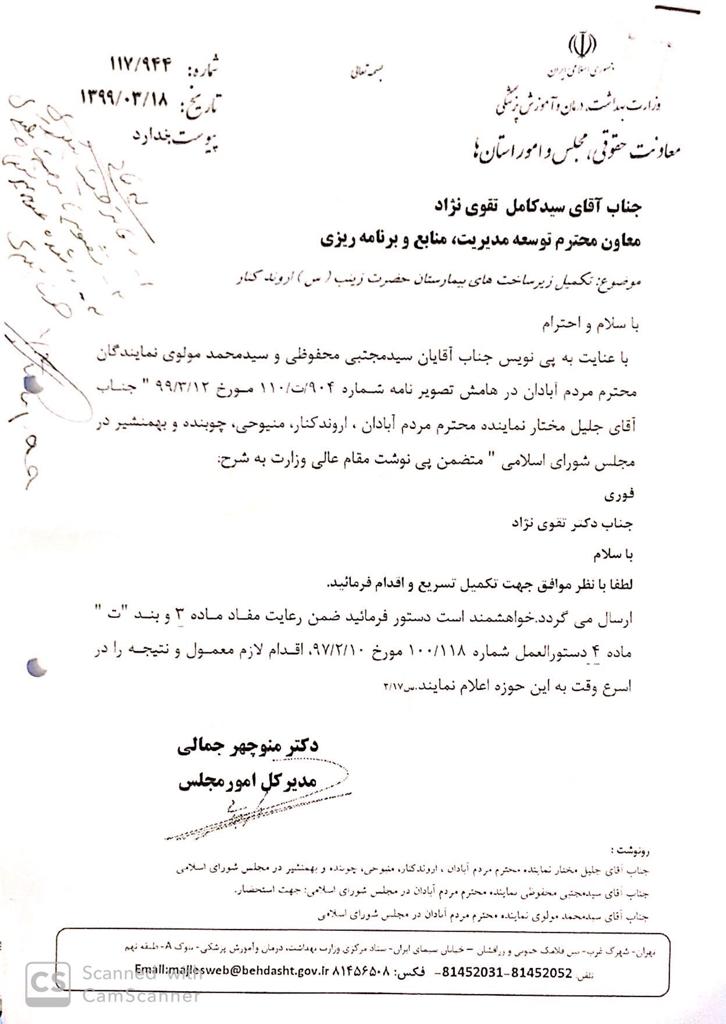 جمهوری اسلامی ایران
وزارت بهداشت، درمان و آموزش پزشکی
معاونت حقوقی، مجلس و امور استان‌ها
بسمه تعالی
شماره: ۱۱۷/۹۴۴
تاریخ: ۱۳۹۹/۰۳/۱۸
پیوست: ندارد
جناب آقای سیدکامل تقوی نژاد
معاون محترم توسعه مدیریت، منابع و برنامه ریزی
موضوع: تکمیل زیرساخت های بیمارستان حضرت زینب (س) اروند کنار
با سلام و احترام
با عنایت به پی نویس جناب آقایان سیدمجتبی محفوظی و سیدمحمد مولوی نمایندگان
محترم مردم آبادان در هامش تصویر نامه شماره ۹۰۴/ت/۱۱۰ مورخ ۹۹/۳/۱۲ " جناب
آقای جلیل مختار نماینده محترم مردم آبادان ، اروندکنار، منیوحی، چوبنده و بهمنشیر در
مجلس شورای اسلامی " متضمن پی نوشت مقام عالی وزارت به شرح:
فوری
جناب دکتر تقوی نژاد
با سلام
لطفا با نظر موافق جهت تکمیل تسریع و اقدام فرمائید.
ارسال می گردد.خواهشمند است دستور فرمائید ضمن رعایت مفاد ماده ۳ و بند "ت "
ماده ۴ دستورالعمل شماره ۱۰۰/۱۱۸ مورخ ۹۷/۲/۱۰، اقدام لازم معمول و نتیجه را در
اسرع وقت به این حوزه اعلام نمایند.س۳/۱۷
دکتر منوچهر جمالی
مدیرکل امور مجلس
رونوشت :
جناب آقای جلیل مختار نماینده محترم مردم آبادان ، اروندکنار، منیوحی، چوبنده و بهمنشیر در مجلس شورای اسلامی
جناب آقای سیدمجتبی محفوظی نماینده محترم مردم آبادان در مجلس شورای اسلامی: جهت استحضار.
جناب آقای سیدمحمد مولوی نماینده محترم مردم آبادان در مجلس شورای اسلامی
تهران- شهرک غرب- بین فلامک جنوبی و زرافشان – خیابان سیمای ایران- ستاد مرکزی وزارت بهداشت، درمان وآموزش پزشکی- بلوک A- طبقه نهم
تلفن: 81452052-81452031- فکس: ۸۱۴۵۶۵۰۸ Email:majlesweb@behdasht.gov.ir
CS Scanned with
CamScanner